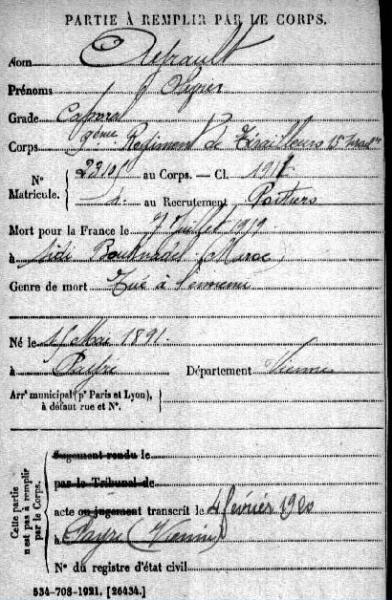 PARTIE À REMPLIR PAR LE CORPS.
Nom
Prénoms
Grade Caporal
Corps 2ème Régiment de Tirailleurs
N° Matricule. au Corps. — Cl. 1912
au Recrutement Poitiers
Mort pour la France le 7 Juillet 1919
à Sidi (Maroc)
Genre de mort Tué à l'ennemi
Né le 15 Mai 1891.
à Payré Département Vienne
Arrt municipal (pr Paris et Lyon),
à défaut rue et N°.
Cette partie
n'est pas à remplir
par le Corps.
Jugement rendu le
par le Tribunal de
acte ou jugement transcrit le 4 février 1920
à Payré (Vienne)
N° du registre d'état civil
534-708-1921. [26434.]